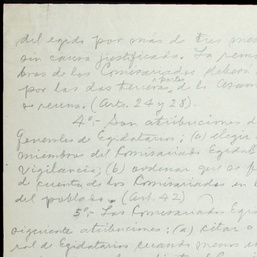 del egido por más de tres mes
sin causa justificada. La remo
bros de los Comisariados deberá
por las dos terceras partes de la Asam
se reuna. (Arts. 24 y 28).
4º.- Son atribuciones d
Generales de Egidatarios; (a) elegir
miembros del Comisariado Egidal
Vigilancia; (b) ordenar que se f
de cuenta de los Comisariados en l
del poblado. (Art. 42)
5º.- Los Comisariados Egi
siguientes atribuciones; (a) citar a
ral de Egidatarios cuando menos un